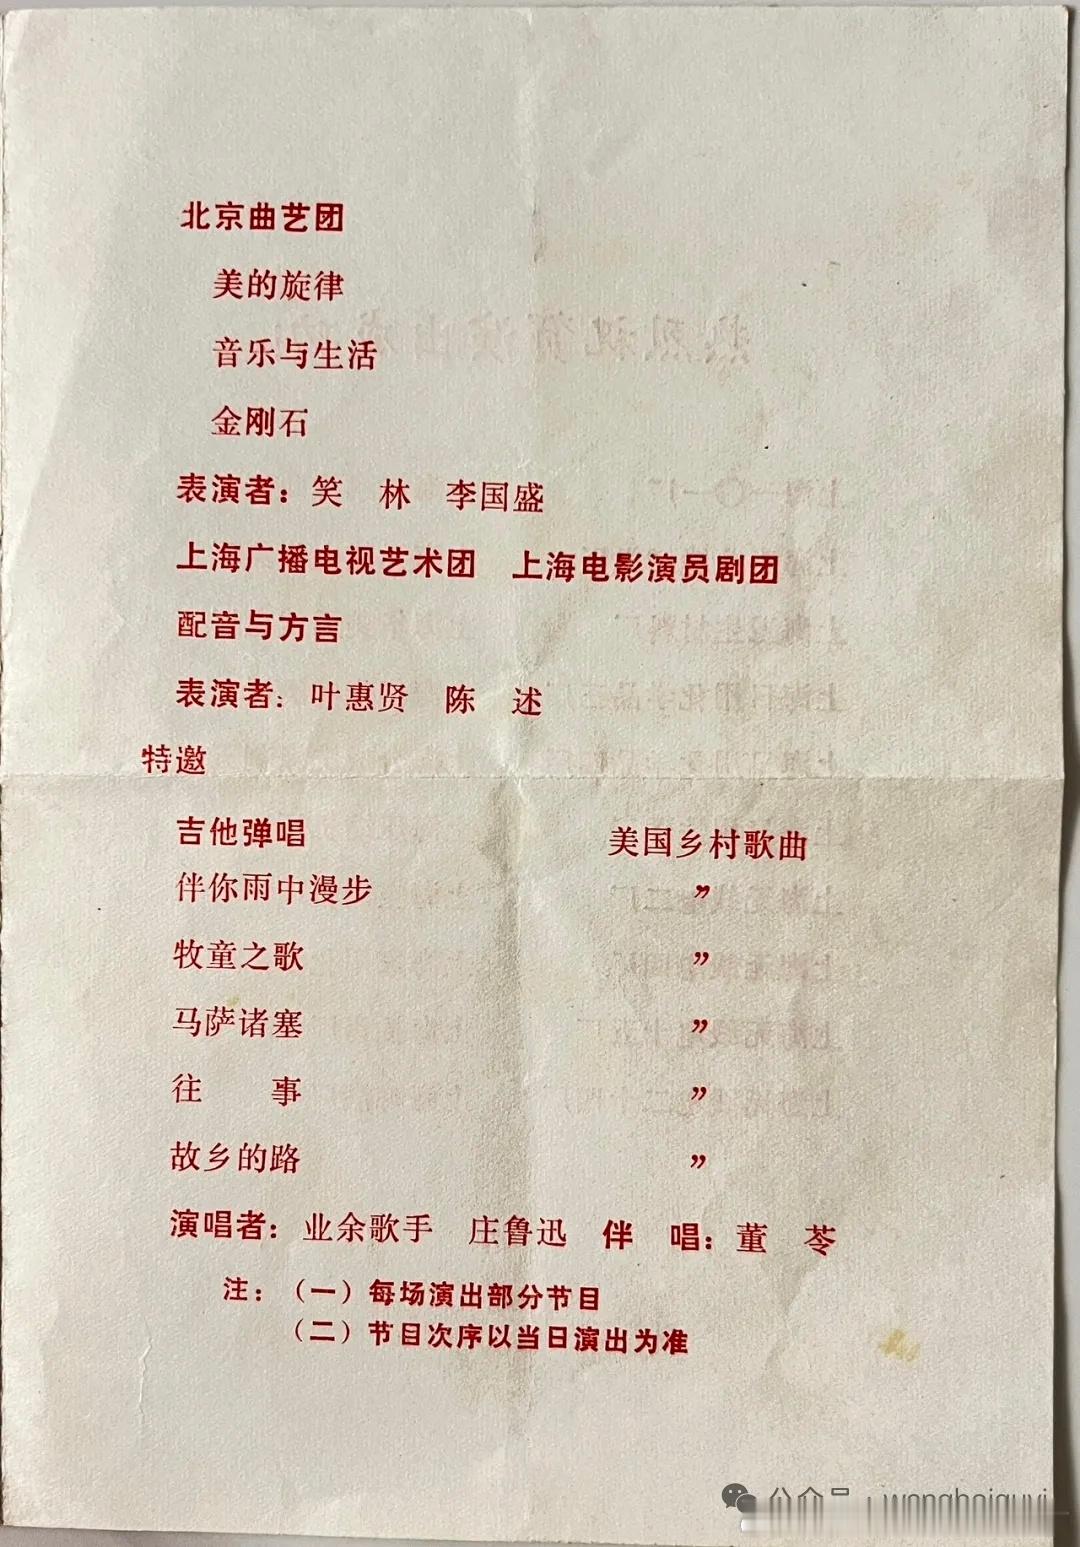 北京曲艺团
美的旋律
音乐与生活
金刚石
表演者：笑　林　李国盛
上海广播电视艺术团　上海电影演员剧团
配音与方言
表演者：叶惠贤　陈　述
特邀
吉他弹唱　美国乡村歌曲
伴你雨中漫步　〃
牧童之歌　〃
马萨诸塞　〃
往　事　〃
故乡的路　〃
演唱者：业余歌手　庄鲁迅　伴　唱：董　苓
注：（一）每场演出部分节目
（二）节目次序以当日演出为准
公众号